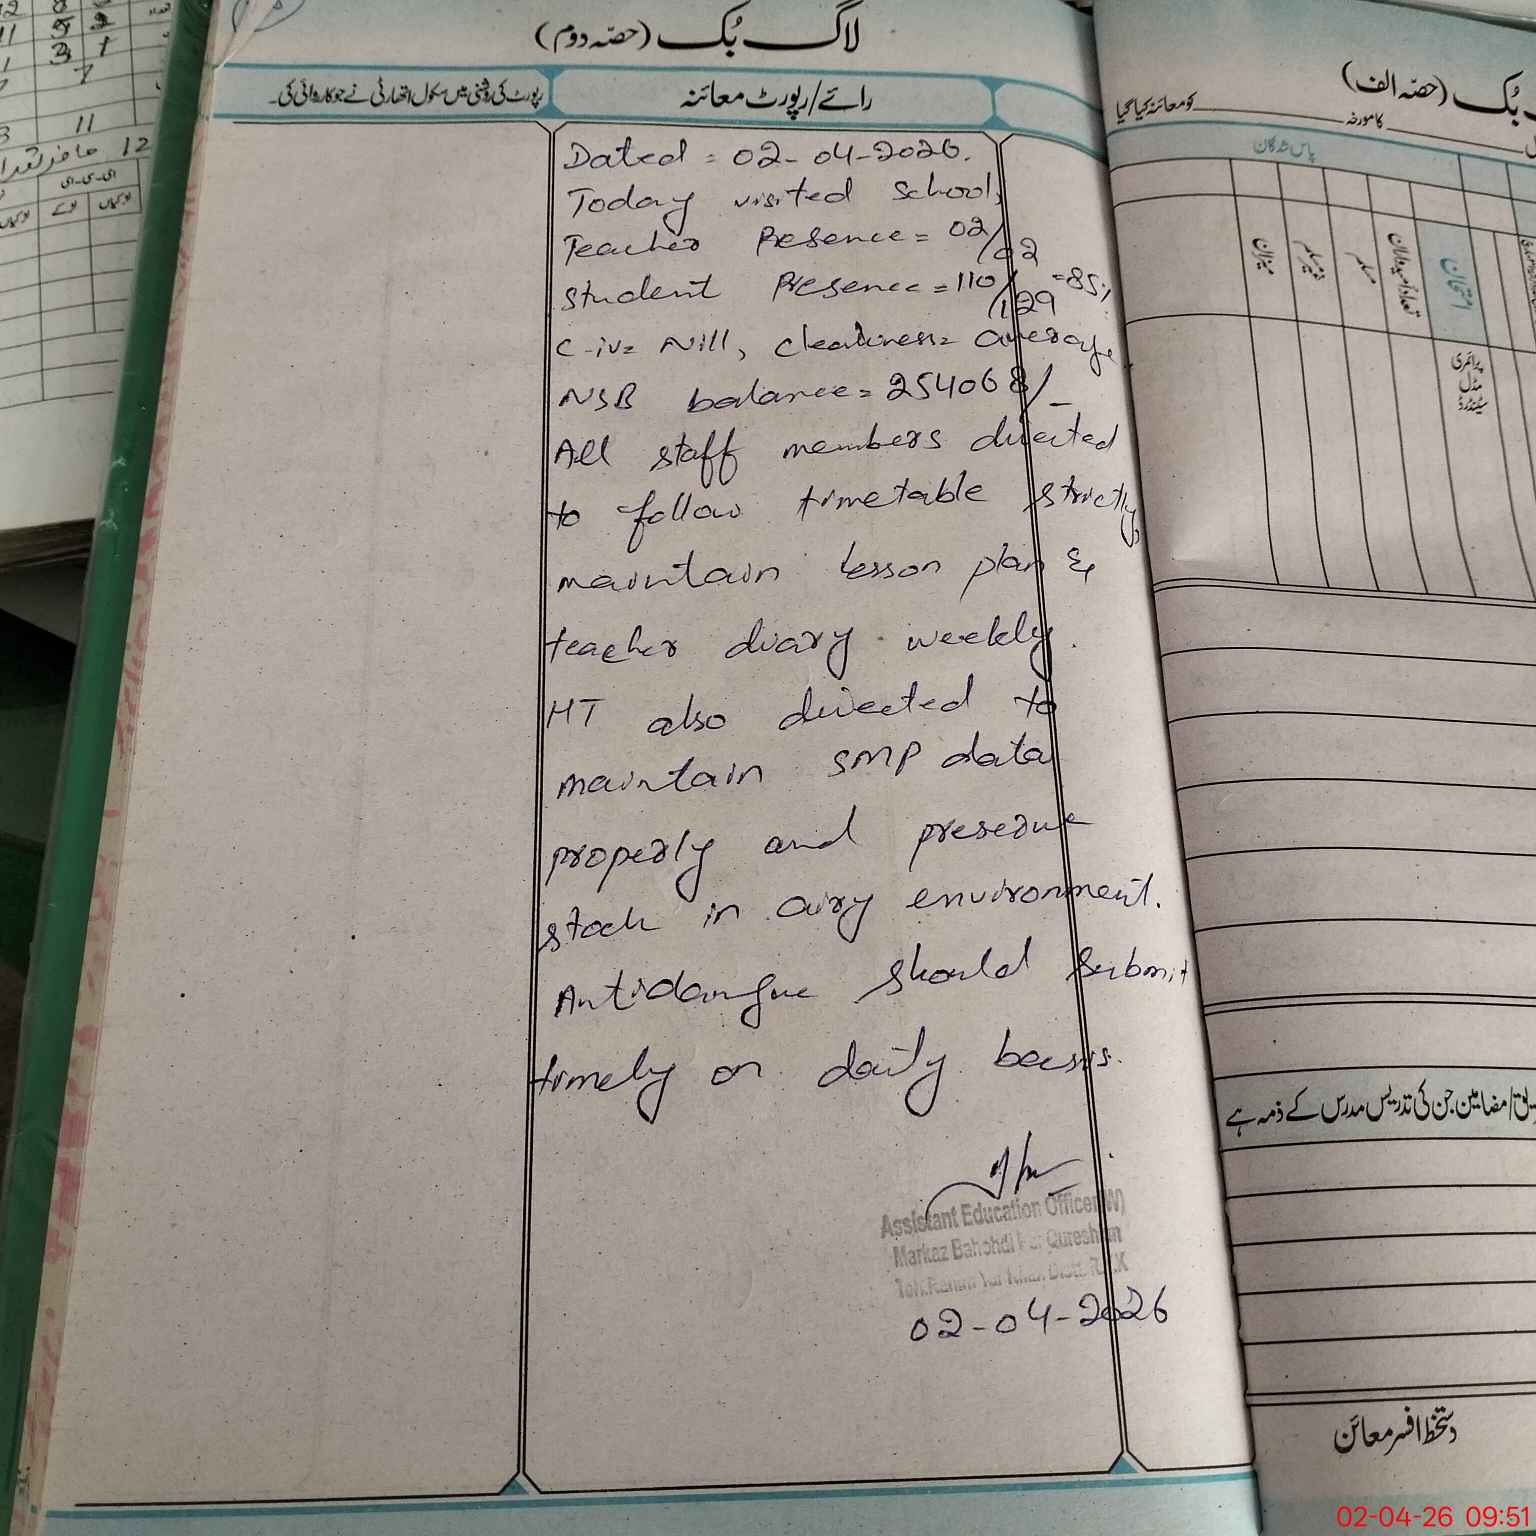 لاگ بُک (حصّہ دوم)
رپورٹ کی روشنی میں سکول اتھارٹی نے جو کاروائی کی۔
رائے/رپورٹ معائنہ
Dated = 02-04-2026.
Today visited school,
Teacher Presence = 02/02
Student Presence = 110/129 = 85%
C-iv = Nill, Cleanness = average
NSB balance = 254068/-
All staff members directed
to follow timetable strictly,
maintain lesson plan &
teacher diary weekly.
HT also directed to
maintain SMP data
properly and preserve
stock in airy environment.
Antidengue should submit
timely on daily basis.
Assistant Education Officer (W)
Markaz
02-04-2026
بُک (حصّہ الف)
کو معائنہ کیا گیا
کا مورخہ
پاس شدگان
میزان
غیر مسلم
مسلم
تعداد امیدواران
امتحان
پرائمری
مڈل
سٹینڈرڈ
مضامین جن کی تدریس مدرس کے ذمہ ہے
دستخط افسر معائن
11
12 حاضر تعداد
ای۔سی۔ای
02-04-26 09:51